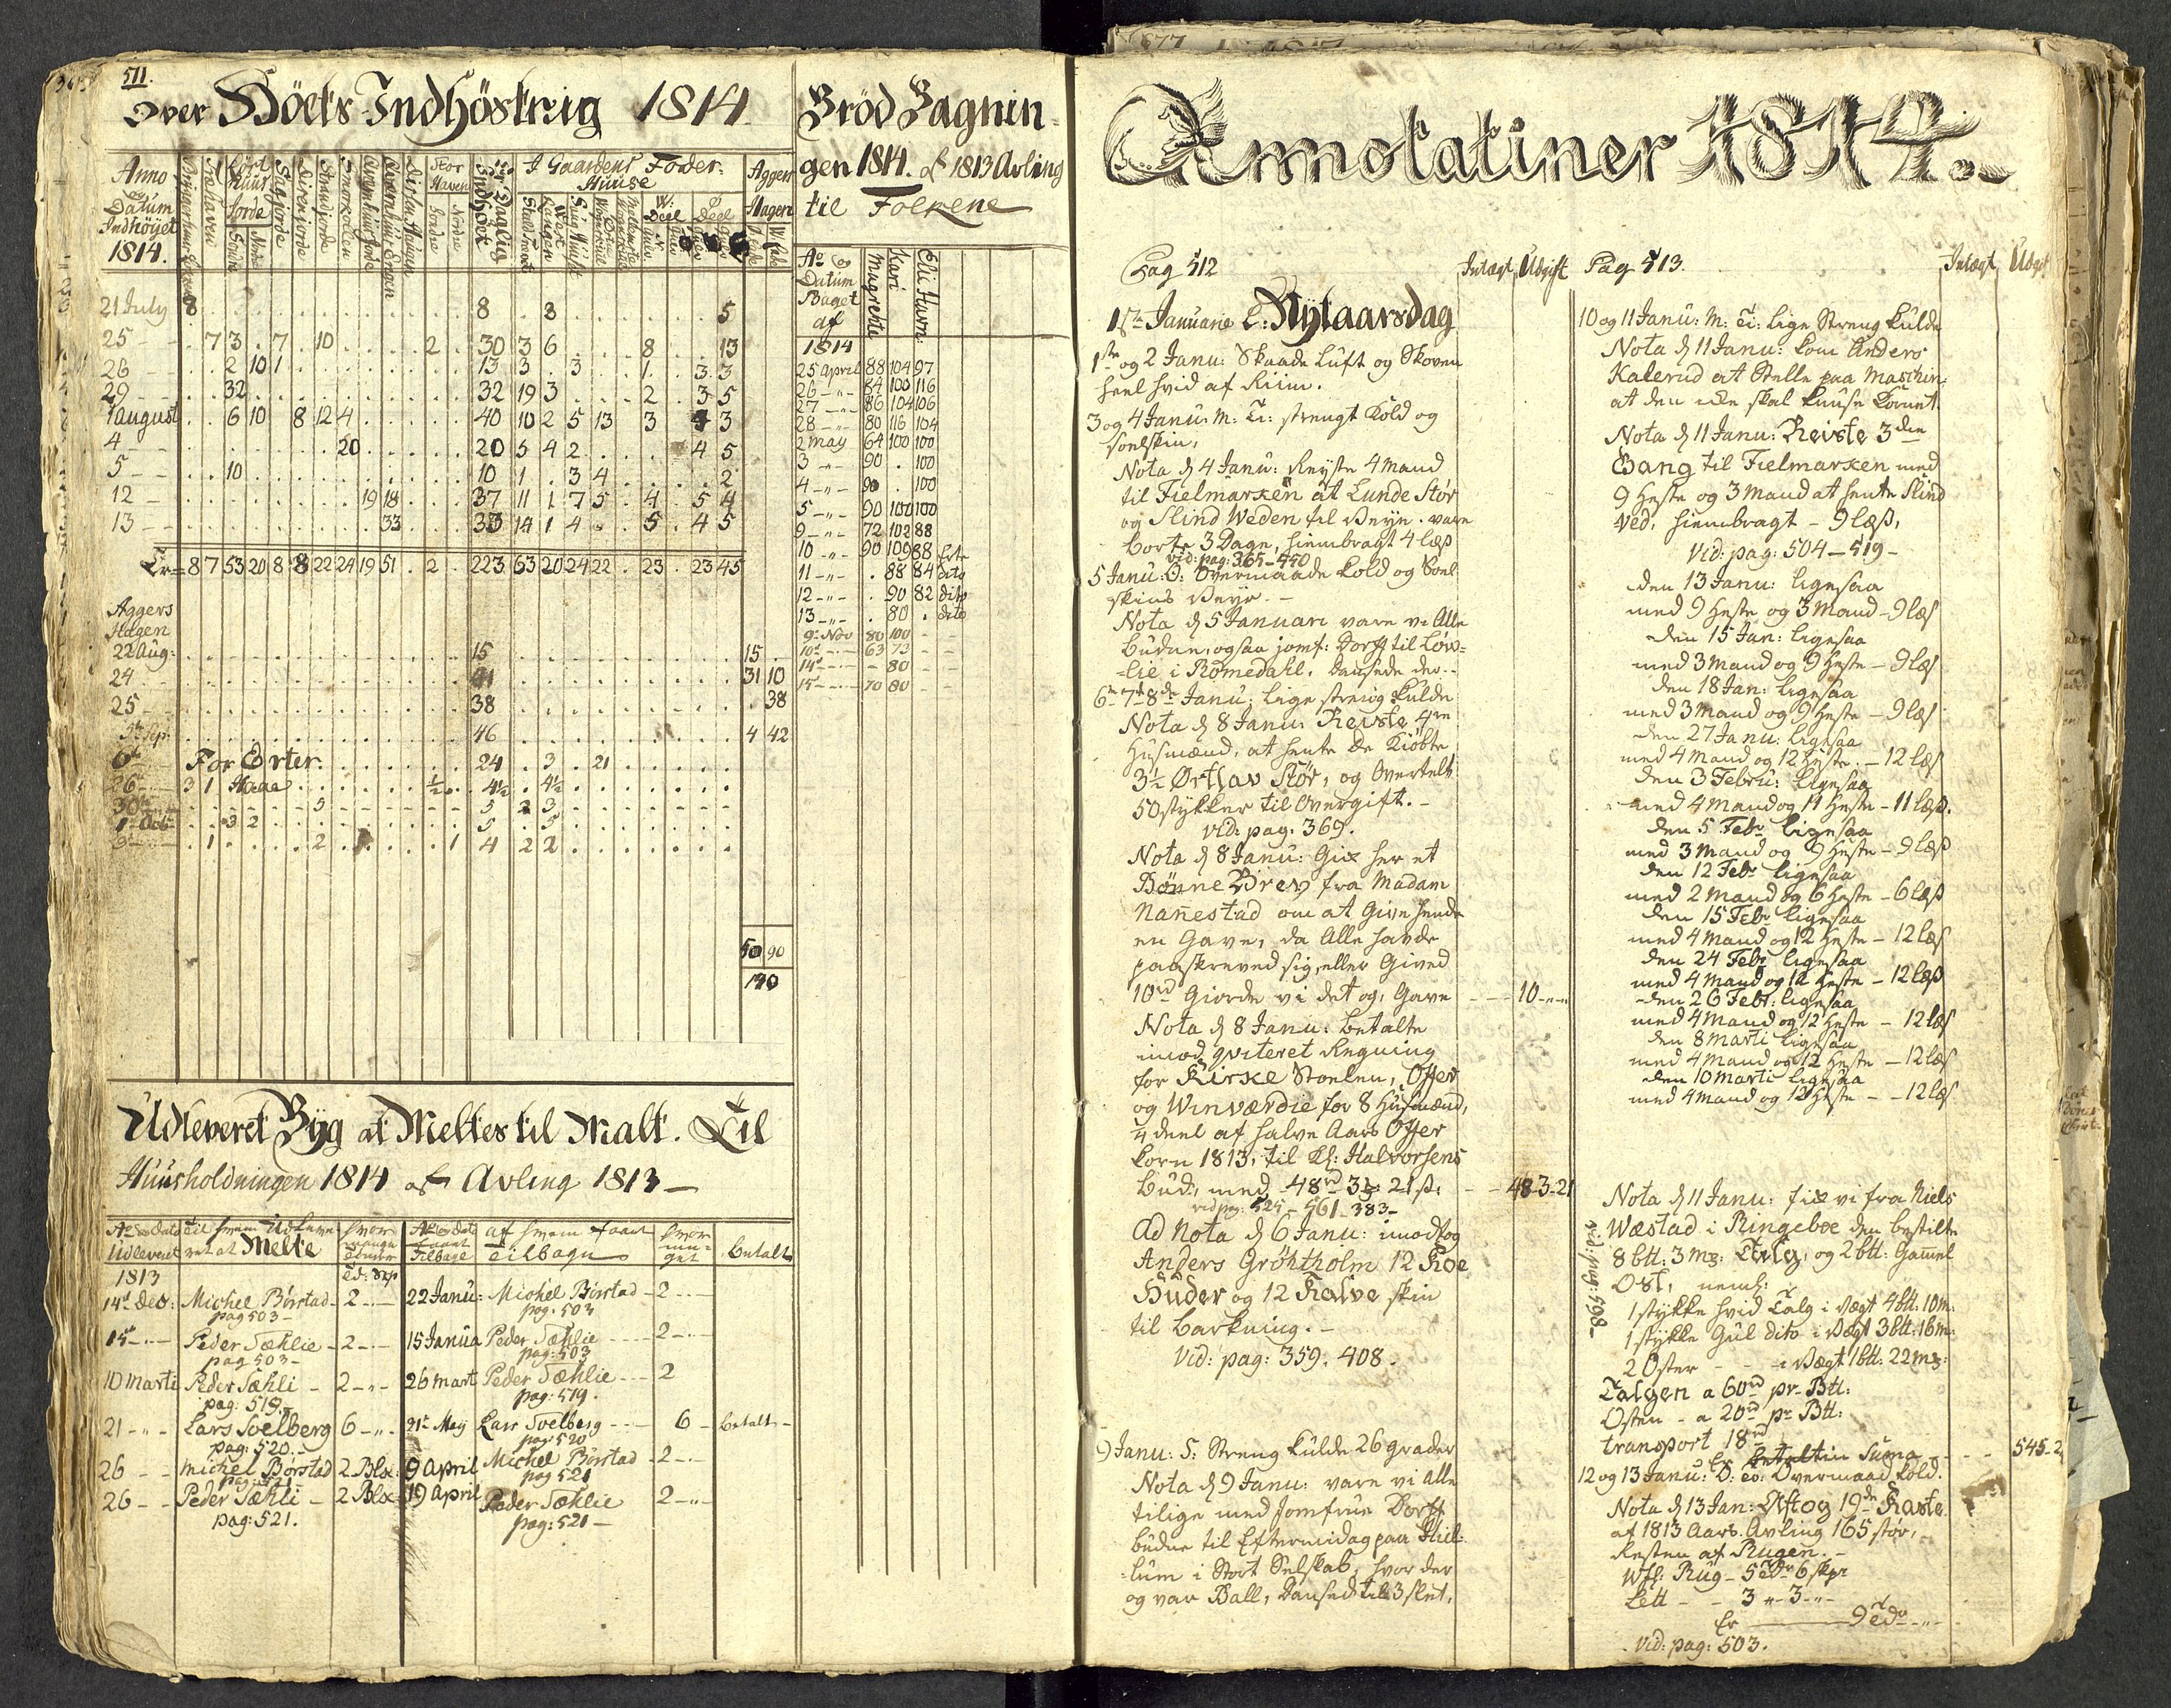 511.
Over Höets Indhöstnig 1814
Anno
Datum
Indhöyet
1814.
Træhaven
Stor
Haven
Søndre
Nordre
Daglig
Indhöet
I Gaardens Foder-
Huuse
W: Deel
Ø Deel
Aggers
Hagen
21 July 8 . . . 8 . 8 . . . 5
25 - - . 7 3 . 7 . 10 . . . . 2 . 30 3 6 . . . 8 . . 13
26 - - . . 2 10 1 . . . 13 3 . 3 . . 1 . 3 3
29 - - . . 32 . . . 32 19 3 . . . 2 . 3 5
1 august . . 6 10 . 8 12 4 . . . 40 10 2 5 13 . 3 . 4 3
4 - - . . . 20 . . . 20 5 4 2 . . . 4 5
5 - - . . 10 . . . 10 1 . 3 4 . . . 2
12 - . . . 19 18 . . . 37 11 1 7 5 . 4 . 5 4
13 - - . . . 33 . . . 33 14 1 4 . . 5 . 4 5
Er= 8 7 53 20 8 8 22 24 19 51 . 2 . 223 63 20 24 22 . 23 . 23 45
Aggers
Hagen
22 Aug: . . . 15 . . . 15 .
24 . . . 41 . . . 31 10
25 - - . . . 38 . . . . 38
5te Sep: . . . 46 . . . 4 42
6te For Erter. . . . 24 . 3 . 21 . . .
26te 3 1 Haae . . . ½ . 4½ . 4½ . . .
30te - - . . . 5 - - - 5 2 3 . . .
1 Octb . . 3 2 . . . 5 . 5 . . .
9 . 1 . . . 2 . . . 1 4 2 2 . . .
50 90
140
Udleveret Byg at Meltes til Malt. Til
Huusholdningen 1814 af Avling 1813 -
Ao og Dato Udleveret
til hvem Udleveret at Melte
hvor mange Tönder
Ao og Dato faaet Tilbage
af hvem faaet Tilbage
hvor meget
betalt
1813 Td: Skp
14de Dec: Michel Börstad - 2 - - 22 Janu: Michel Börstad - 2 - -
pag 503 - pag. 503
15de - - Peder Sæhlie - 2 - - 15 Janua Peder Sæhlie - - - 2 - -
pag 503 - pag: 503
10 Marti Peder Sæhli - 2 - " - 26 mart Peder Sæhlie - - - 2
pag: 519. pag: 519.
21 - " - Lars Soelberg 6 - " - 21de May Lars Soelberg - - - 6 - betalt -
pag: 520. - pag 520
26 - - Michel Börstad 2 Blx: 9 April Michel Börstad - 2 - -
pag: 521 pag 521
26 - - Peder Sæhli - 2 Blx: 19 April Peder Sæhlie 2 - " -
pag: 521. pag: 521 -
Bröd Bagnin-
gen 1814. af 1813 Avling
til Folkene
Ao og
Datum
Baget
af
Magrehte
Kari
Eli Havn:
1814
25 April 88 104 97
26 - " - 84 100 116
27 - " - 86 104 106
28 - " - 80 116 104
2 May 64 100 100
3 - " - 90 . 100
4 - " - 90 . 100
5 - " - 90 100 100
9 - " - 72 102 88
10 - " - 90 109 88
11 - " - . 88 84 dito
12 - " - . 90 82 dito
13 - " - . 80 . dito
9de Nov 80 100 - -
10de - - 63 73 - -
14de - - - 80 - -
15 - - - 70 80 - -
Annotatiner 1814.
Pag 512
Intægt Udgift
1ste Januarie L: Nytaarsdag
1ste og 2 Janu: Skaade Luft og Skoven
heel hvid af Riim.
3 og 4 Janu: M: Ti: strengt Kold og
Soelskin.
Nota d 4 Janu: Reyste 4 Mand
til Fielmarken at Lunde Stör
og Slind Weden til Veye. vare
borte 3 Dage, hiembragt 4 læs
vid: pag: 365 - 450
5 Janu: O: Overmaade Kold og Soel
skins Veyr. -
Nota d 5 Januari vare vi Alle
budne, ogsaa jomf: Dorff til Löv-
-lie i Romedahl. Dansede der. -
6te 7de 8de Janu: Lige streng Kulde
Nota d 8 Janu: Reyste 4re
Husmænd, at hente de Kiöbte
3½ Ørtlav Stör, og Overtelt
50 stykker til Overgift. -
vid: pag: 369.
Nota d 8 Janu: Gik her et
Bönne Brev fra Madam
Nannestad om at Give hende
en Gave, da Alle havde
paaskreved sig, eller Gived
10rd Giorde vi det og, Gave - - - 10 - " - "
Nota d 8 Janu: betalte
imod qviteret Regning
for Kirke Stoelen, Offer
og Winværdie for 8 Husmænd,
¼ deel af halve Aars Offer
korn 1813, til Kl: Halvorsens
Bud, med 48rd 3 21s: - - 48-3-21
vid pag: 525 - 561 - 383 -
Ad Nota d 6 Janu: imodtog
Anders Gröhtholm 12 Koe
Huder og 12 Kalve skin
til Barkning. -
Vid: pag: 359. 408.
9 Janu: S: Streng Kulde 26 grader
Nota d 9 Janu: vare vi alle
tilige med Jomfrue Dorff
budne til Eftermidag paa Huel-
-lum i Stort Selskab, hvor der
og var Ball, Dansed til 3 slet.
Pag 513.
Intægt Udgift
10 og 11 Janu: M: Ti: Lige Streng Kulde
Nota d 11 Janu: kom Anders
Katerud at Stelle paa Maschin:
at den ikke skal knuse Kornet.
Nota d 11 Janu: Reiste 3die
Gang til Fielmarken med
9 Heste og 3 Mand at hente Slind
Ved, hiembragt - 9 læs,
Vid: pag: 504 - 519 -
den 13 Janu: ligesaa
med 9 Heste og 3 Mand - 9 læs
den 15 Jan: ligesaa
med 3 Mand og 9 Heste - 9 læs
den 18 Jan: ligesaa
med 3 Mand og 9 Heste - 9 læs
den 27 Janu: ligesaa
med 4 Mand og 12 Heste. - 12 læs
den 3 Febru: ligesaa
med 4 Mand og 11 Heste - 11 læs.
den 5 Febr ligesaa
med 3 Mand og 9 Heste - 9 læs
den 12 Febr ligesaa
med 2 Mand og 6 Heste - 6 læs
den 15 Febr ligesaa
med 4 Mand og 12 Heste - 12 læs
den 24 Febr ligesaa
med 4 Mand og 12 Heste - 12 læs
den 26 Febr: ligesaa
med 4 Mand og 12 Heste - 12 læs
den 8 Marti ligesaa
med 4 Mand og 12 Heste - 12 læs
den 10 Marti ligesaa
med 4 Mand og 12 Heste - - 12 læs
Nota d 11 Janu: fik vi fra Niels
Wæstad i Ringeboe den bestilte
8 btt: 3 m: Talg, og 2 btt: Gammel
Ost, neml:
vid: pag: 598 -
1 stykke hvid Talg i Vægt 4 btt: 10 m:
1 stykke Gul dito i Vægt 3 btt: 16 m:
2 Oster - - - i Vægt 1 btt: 22 m:
Talgen a 60rd pr. Btt:
Osten - a 20rd pr Btt:
transport 18rd
Er betaltin Suma - - - 545-2
12 og 13 Janu: O: to: Overmaad Kold.
Nota d 13 Jan: Aftog 19de Kaste
af 1813 Aars Avling 165 stör,
Resten af Rugen. -
Wtl: Rug - 5 tdr 6 skpr
Lett - - 3 " - 3 - " -
Er 9 tdr - " -
Vid: pag: 503.